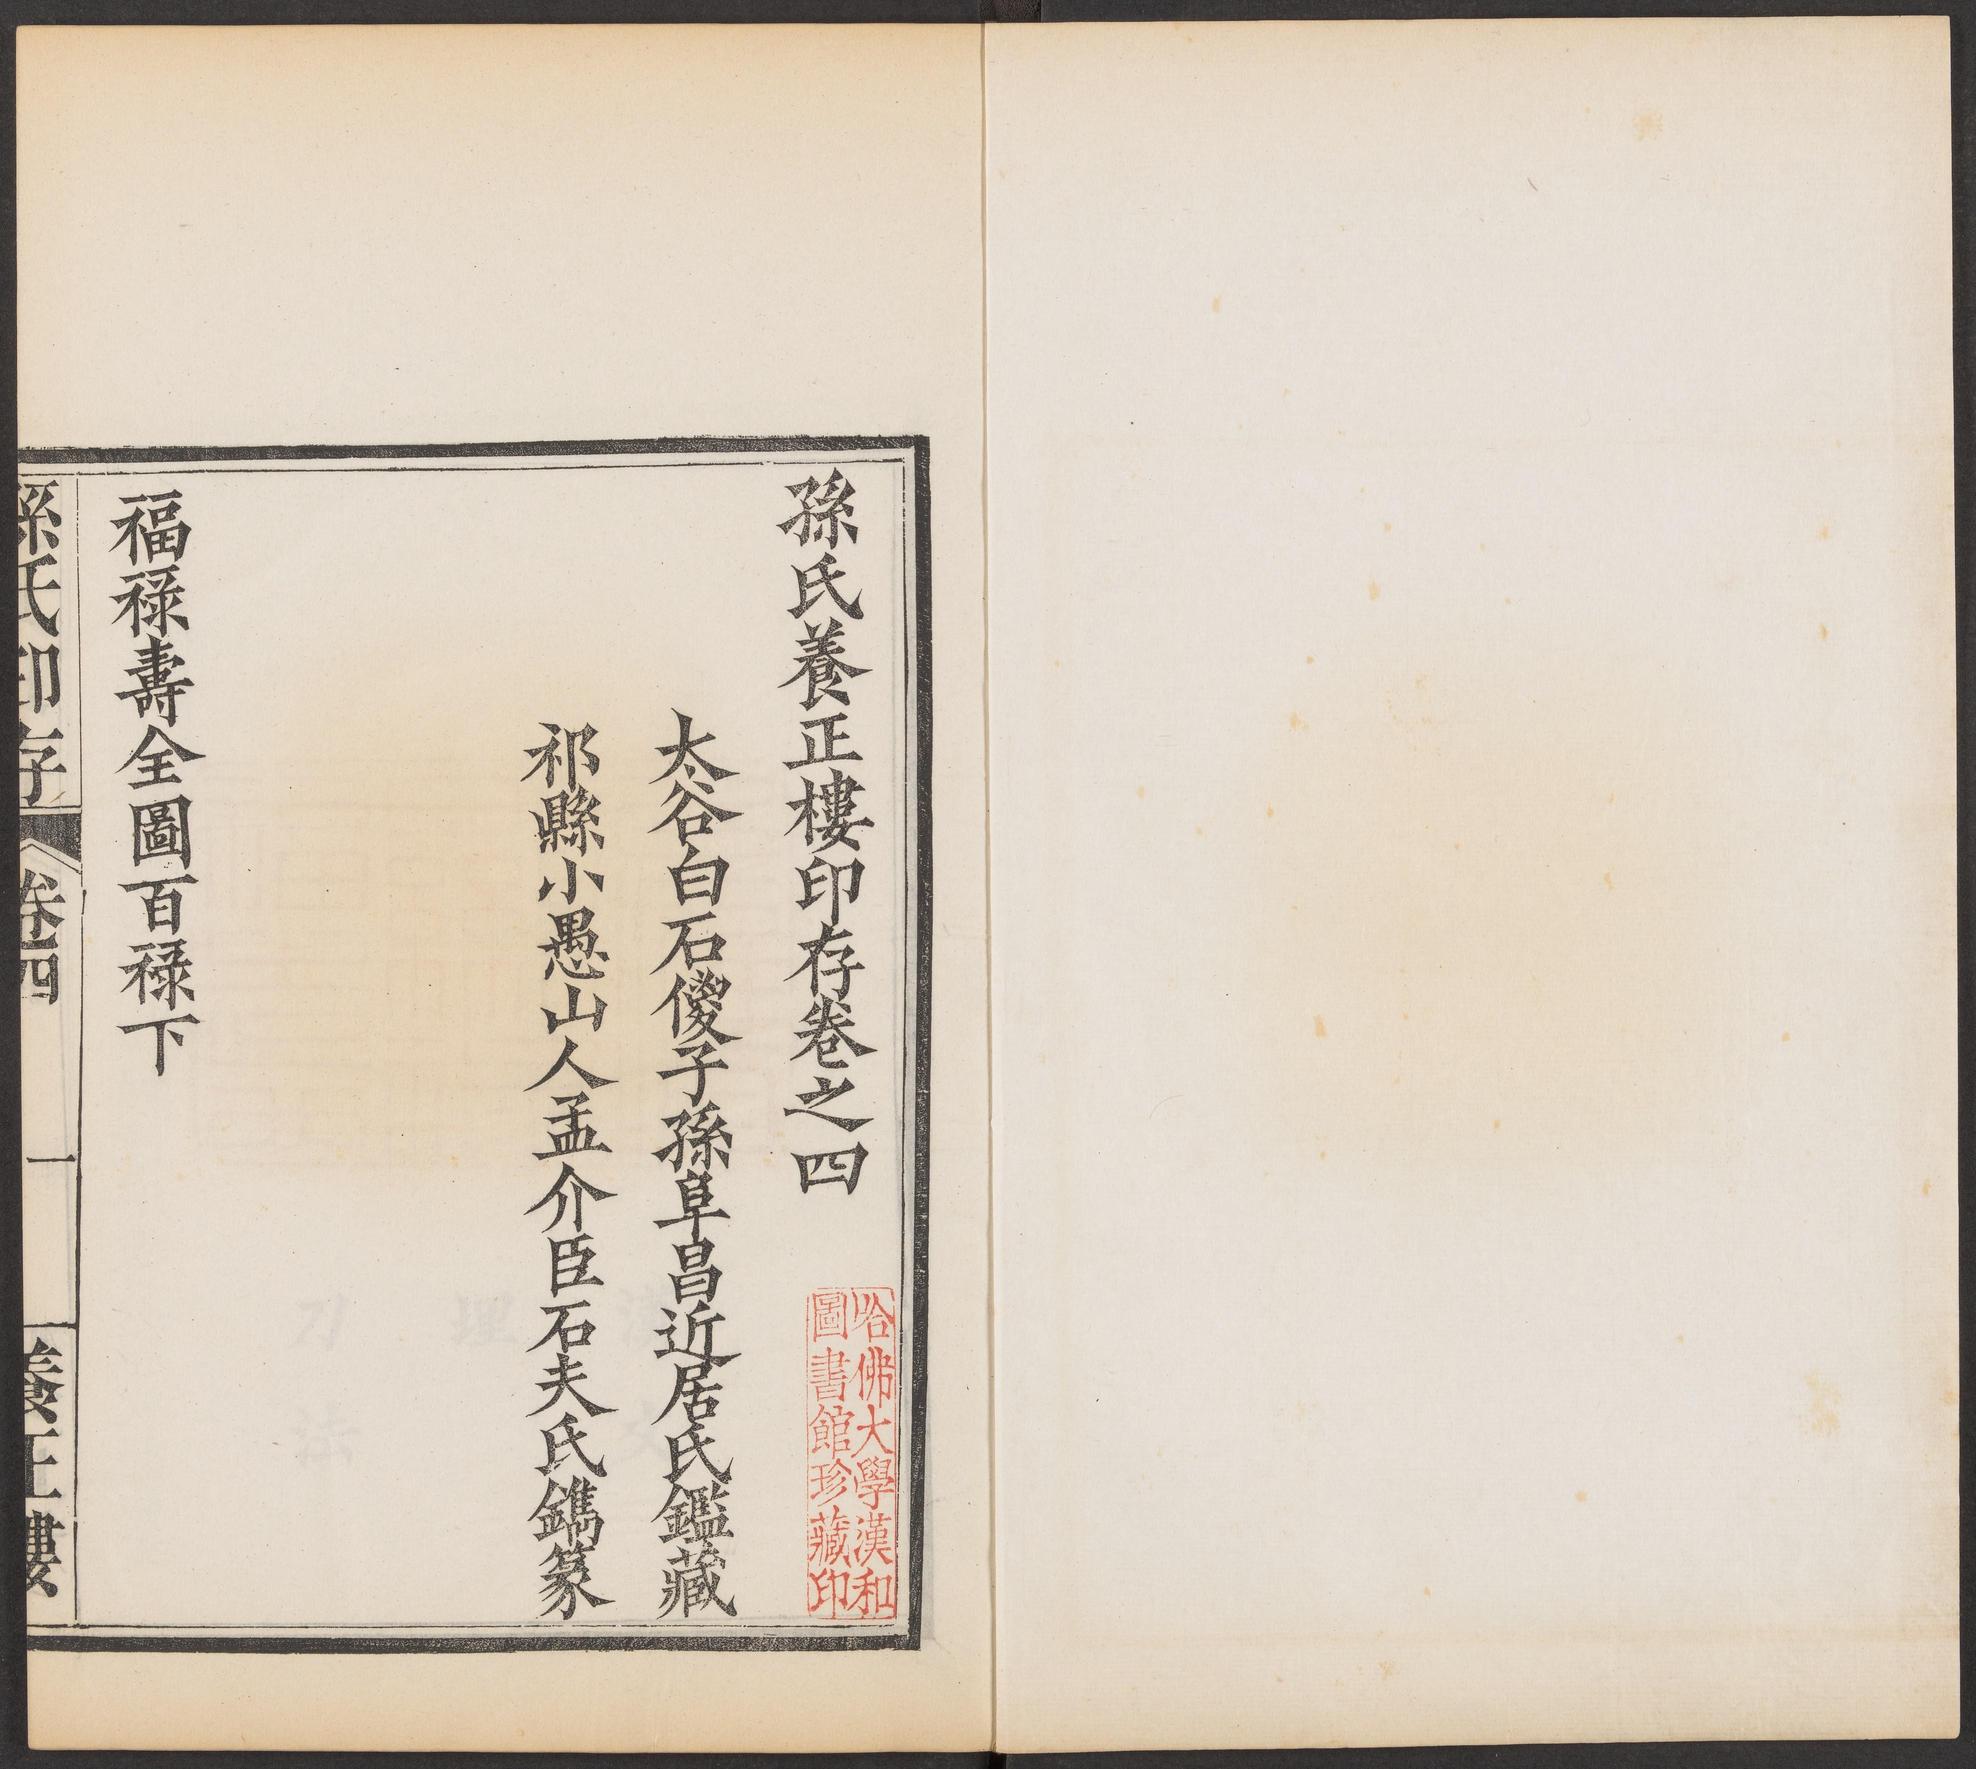 孫氏養正樓印存卷之四
太谷白石傻子孫阜昌近居氏鑑藏
祁縣小愚山人孟介臣石夫氏鐫篆
福祿壽全圖百祿下
孫氏印存
卷四
一
養正樓
哈佛大學漢和
圖書館珍藏印